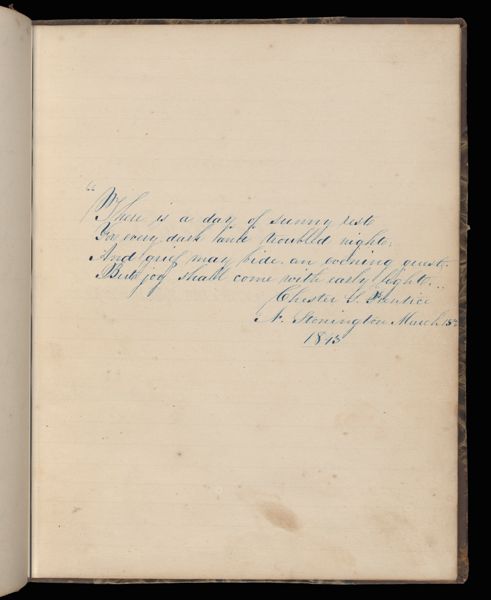 "There is a day of sunny rest
For every dark and troubled night;
And grief may bide an evening guest,
But joy shall come with early light...
Chester S. Prentice
N. Stonington March 13th
1843